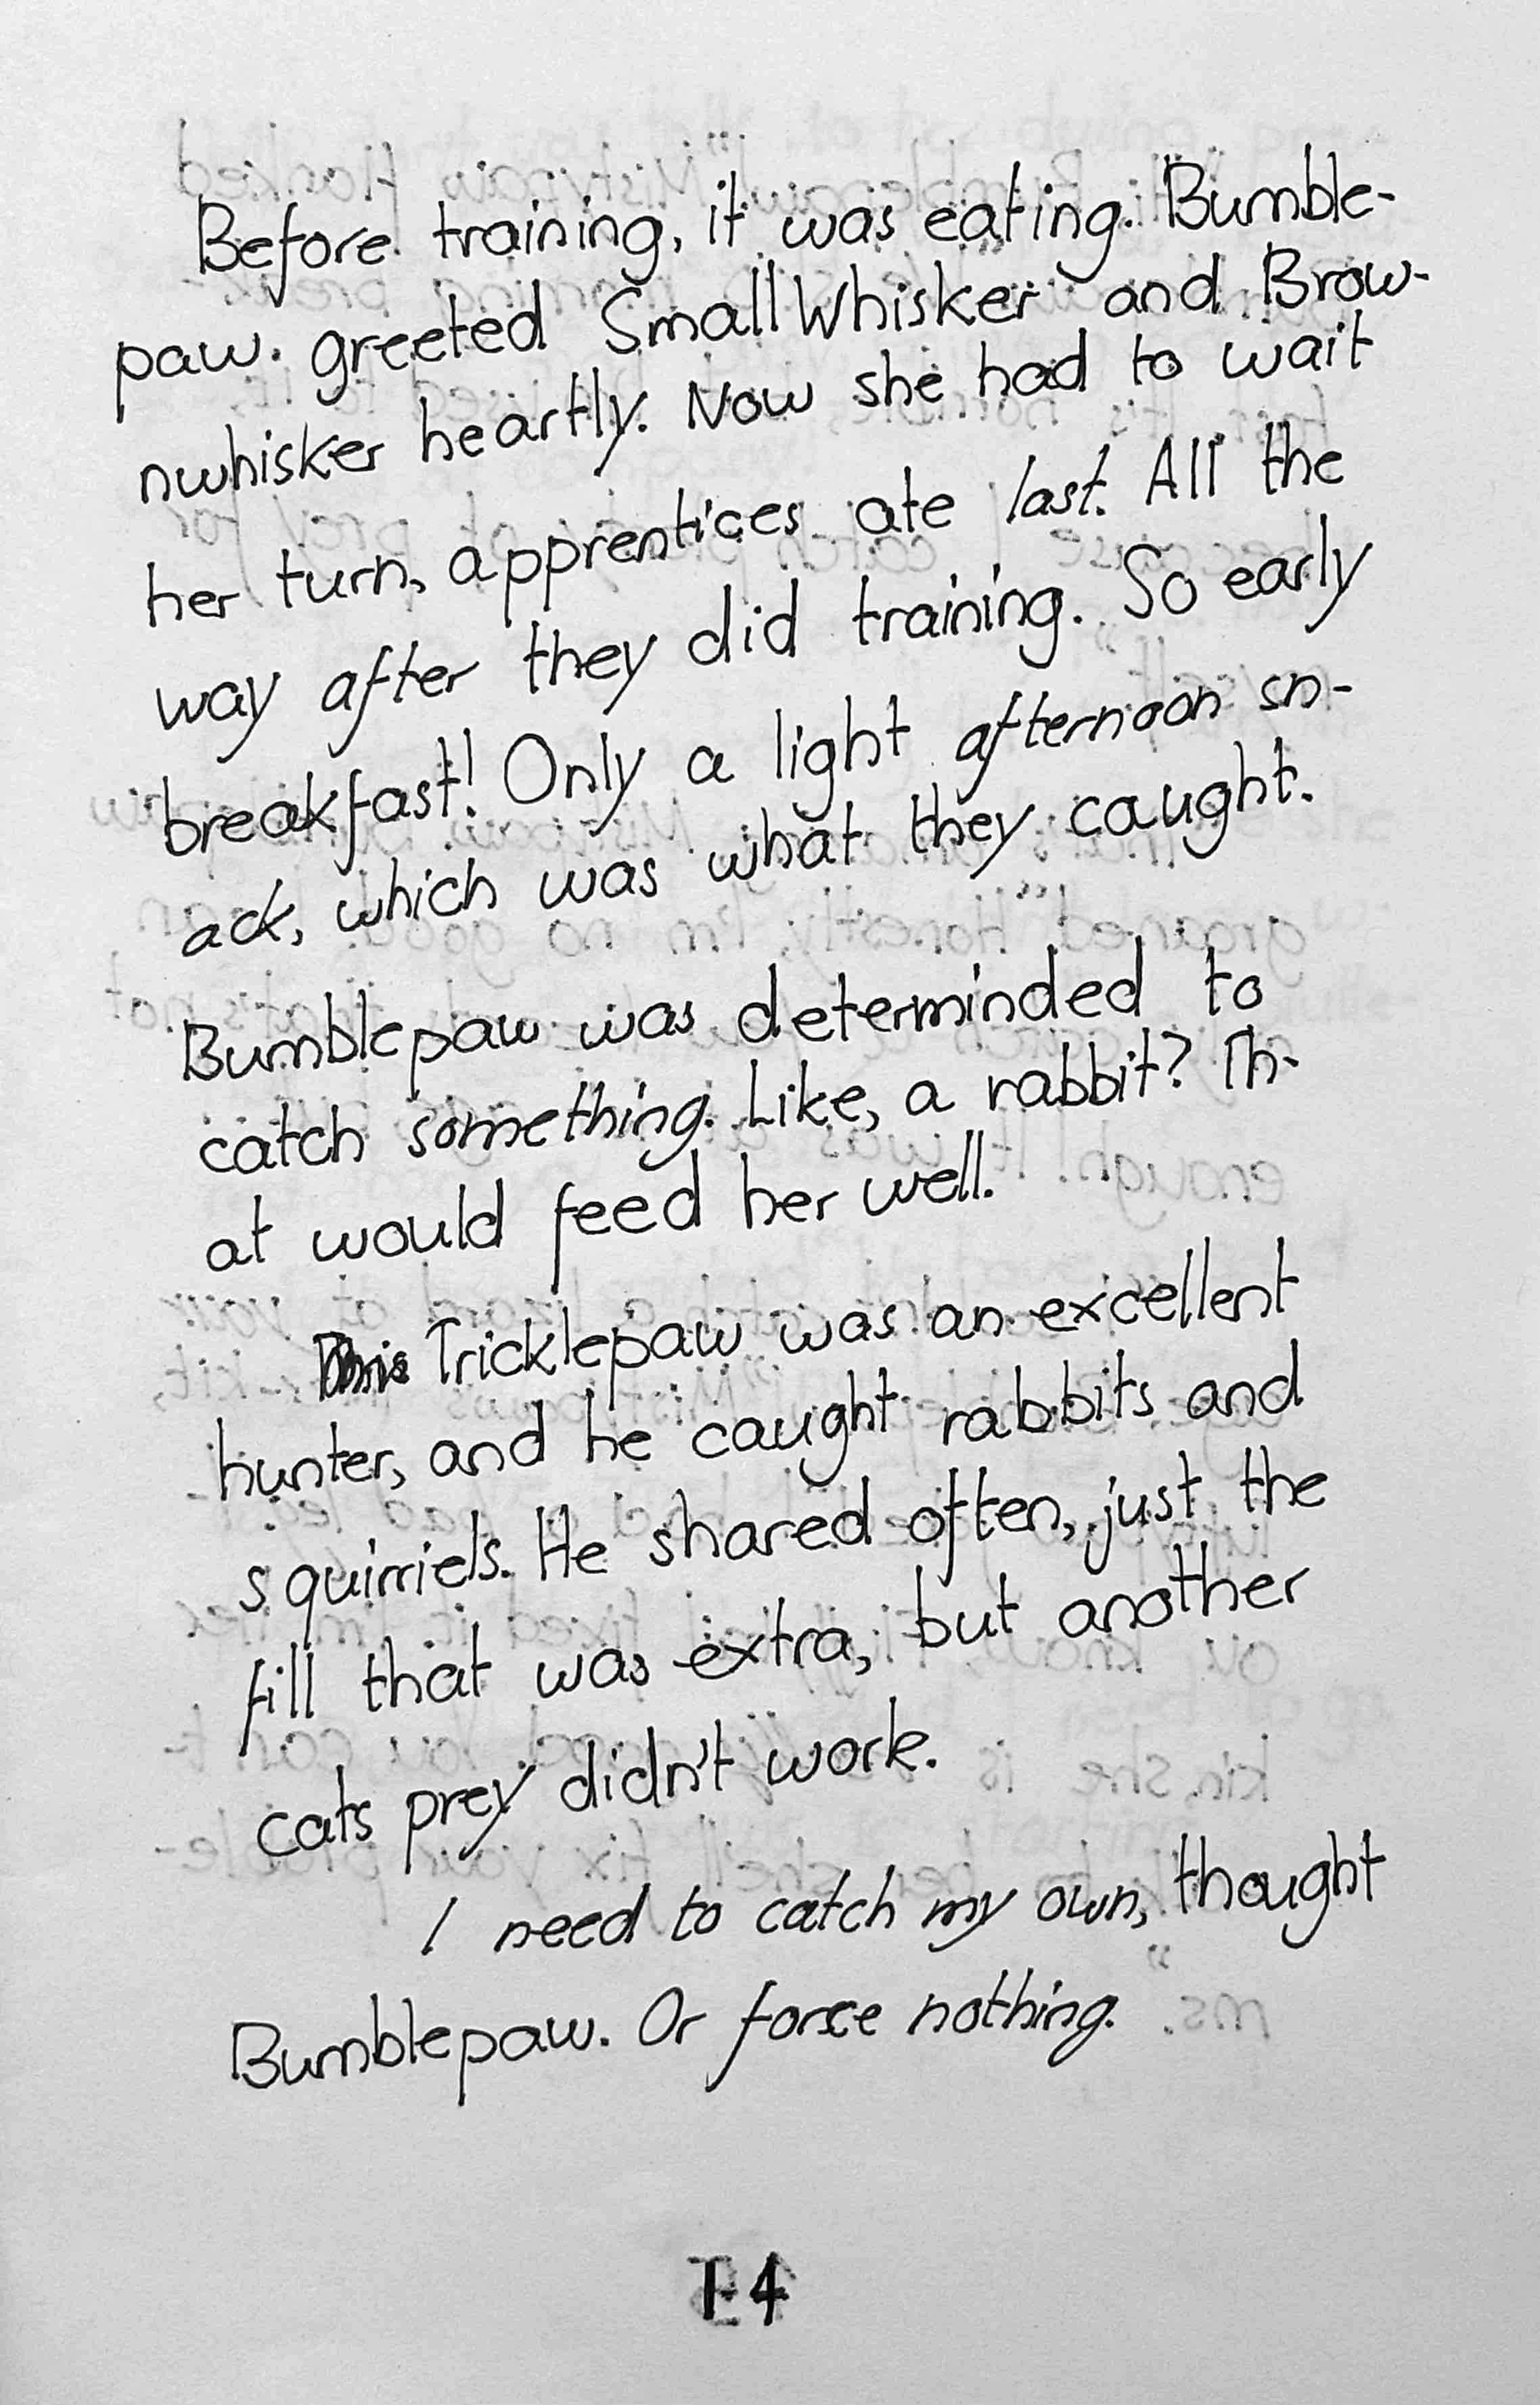 Before training, it was eating. Bumble-
paw. greeted SmallWhisker and Brow-
nwhisker heartly. Now she had to wait
her turn, apprentices ate last. All the
way after they did training. So early
breakfast! Only a light afternoon sn-
ack, which was what they caught.
Bumblepaw was determinded to
catch something. Like, a rabbit? Th-
at would feed her well.
Tricklepaw was an excellent
hunter, and he caught rabbits and
squirriels. He shared often, just the
fill that was extra, but another
cats prey didn't work.
I need to catch my own, thought
Bumblepaw. Or force nothing.
14